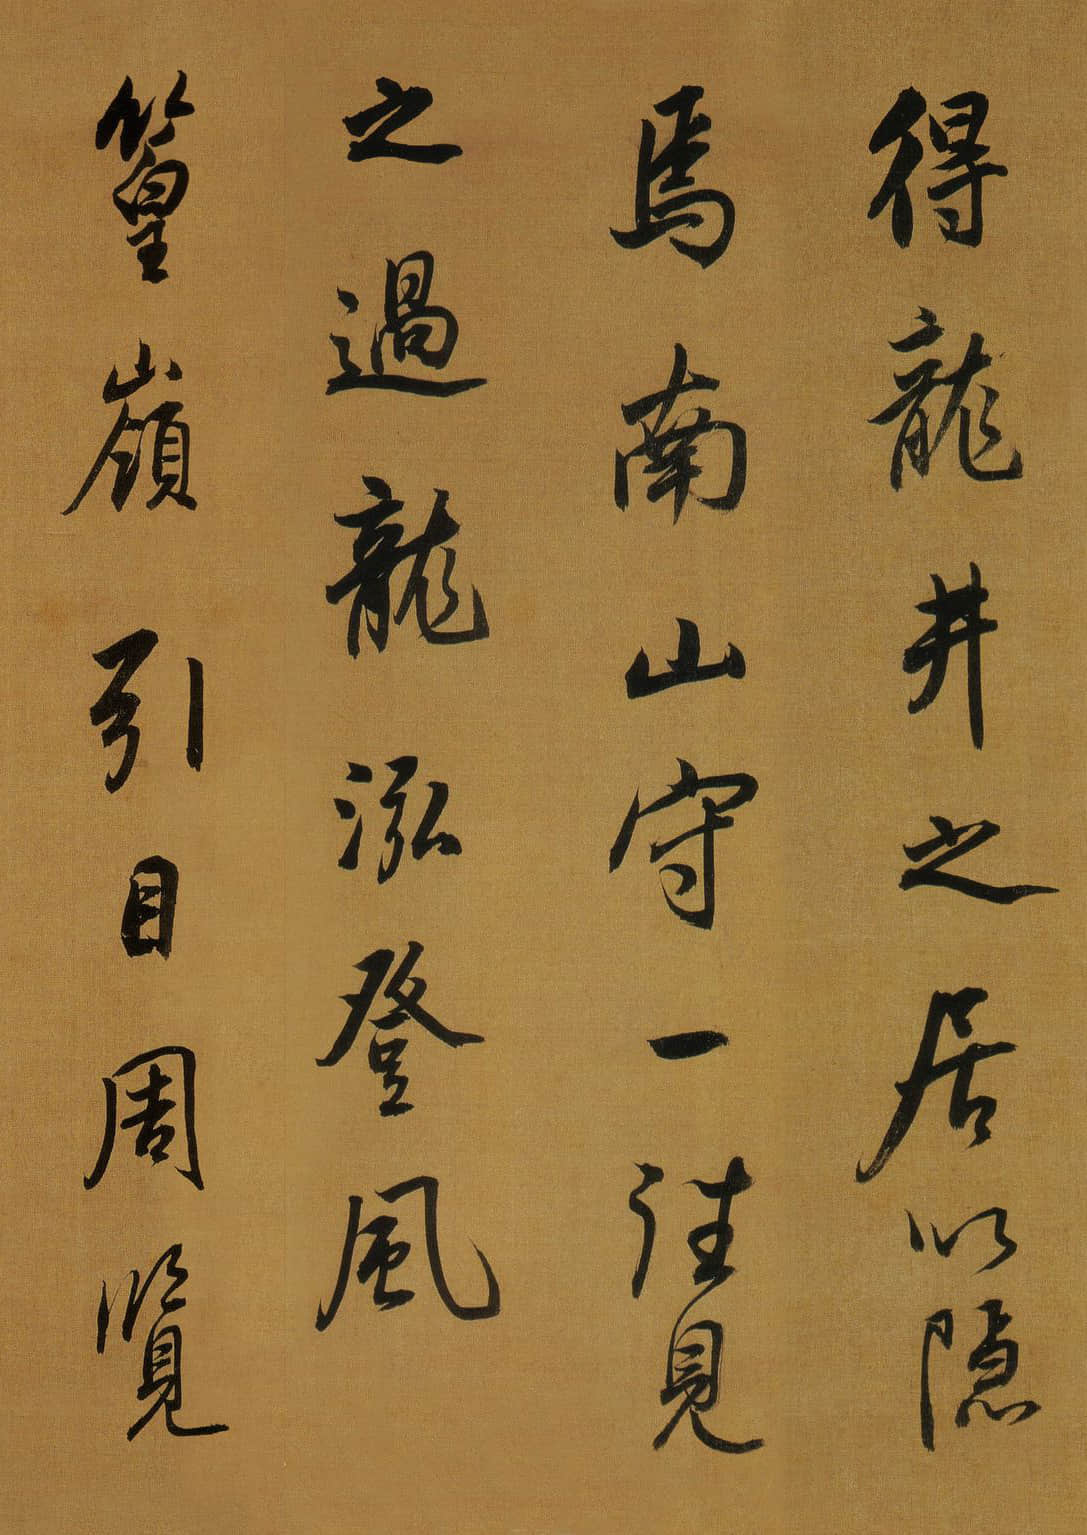 得龍井之居以隱
焉南山守一往見
之過龍泓登風
篁嶺引目周覽